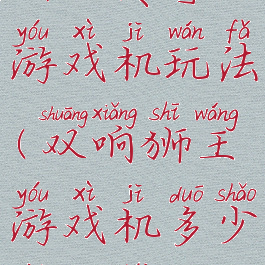 yóu xì jī wán fǎ
游戏机玩法
shuāng xiǎng shī wáng
(双响狮王
yóu xì jī duō shǎo
游戏机多少